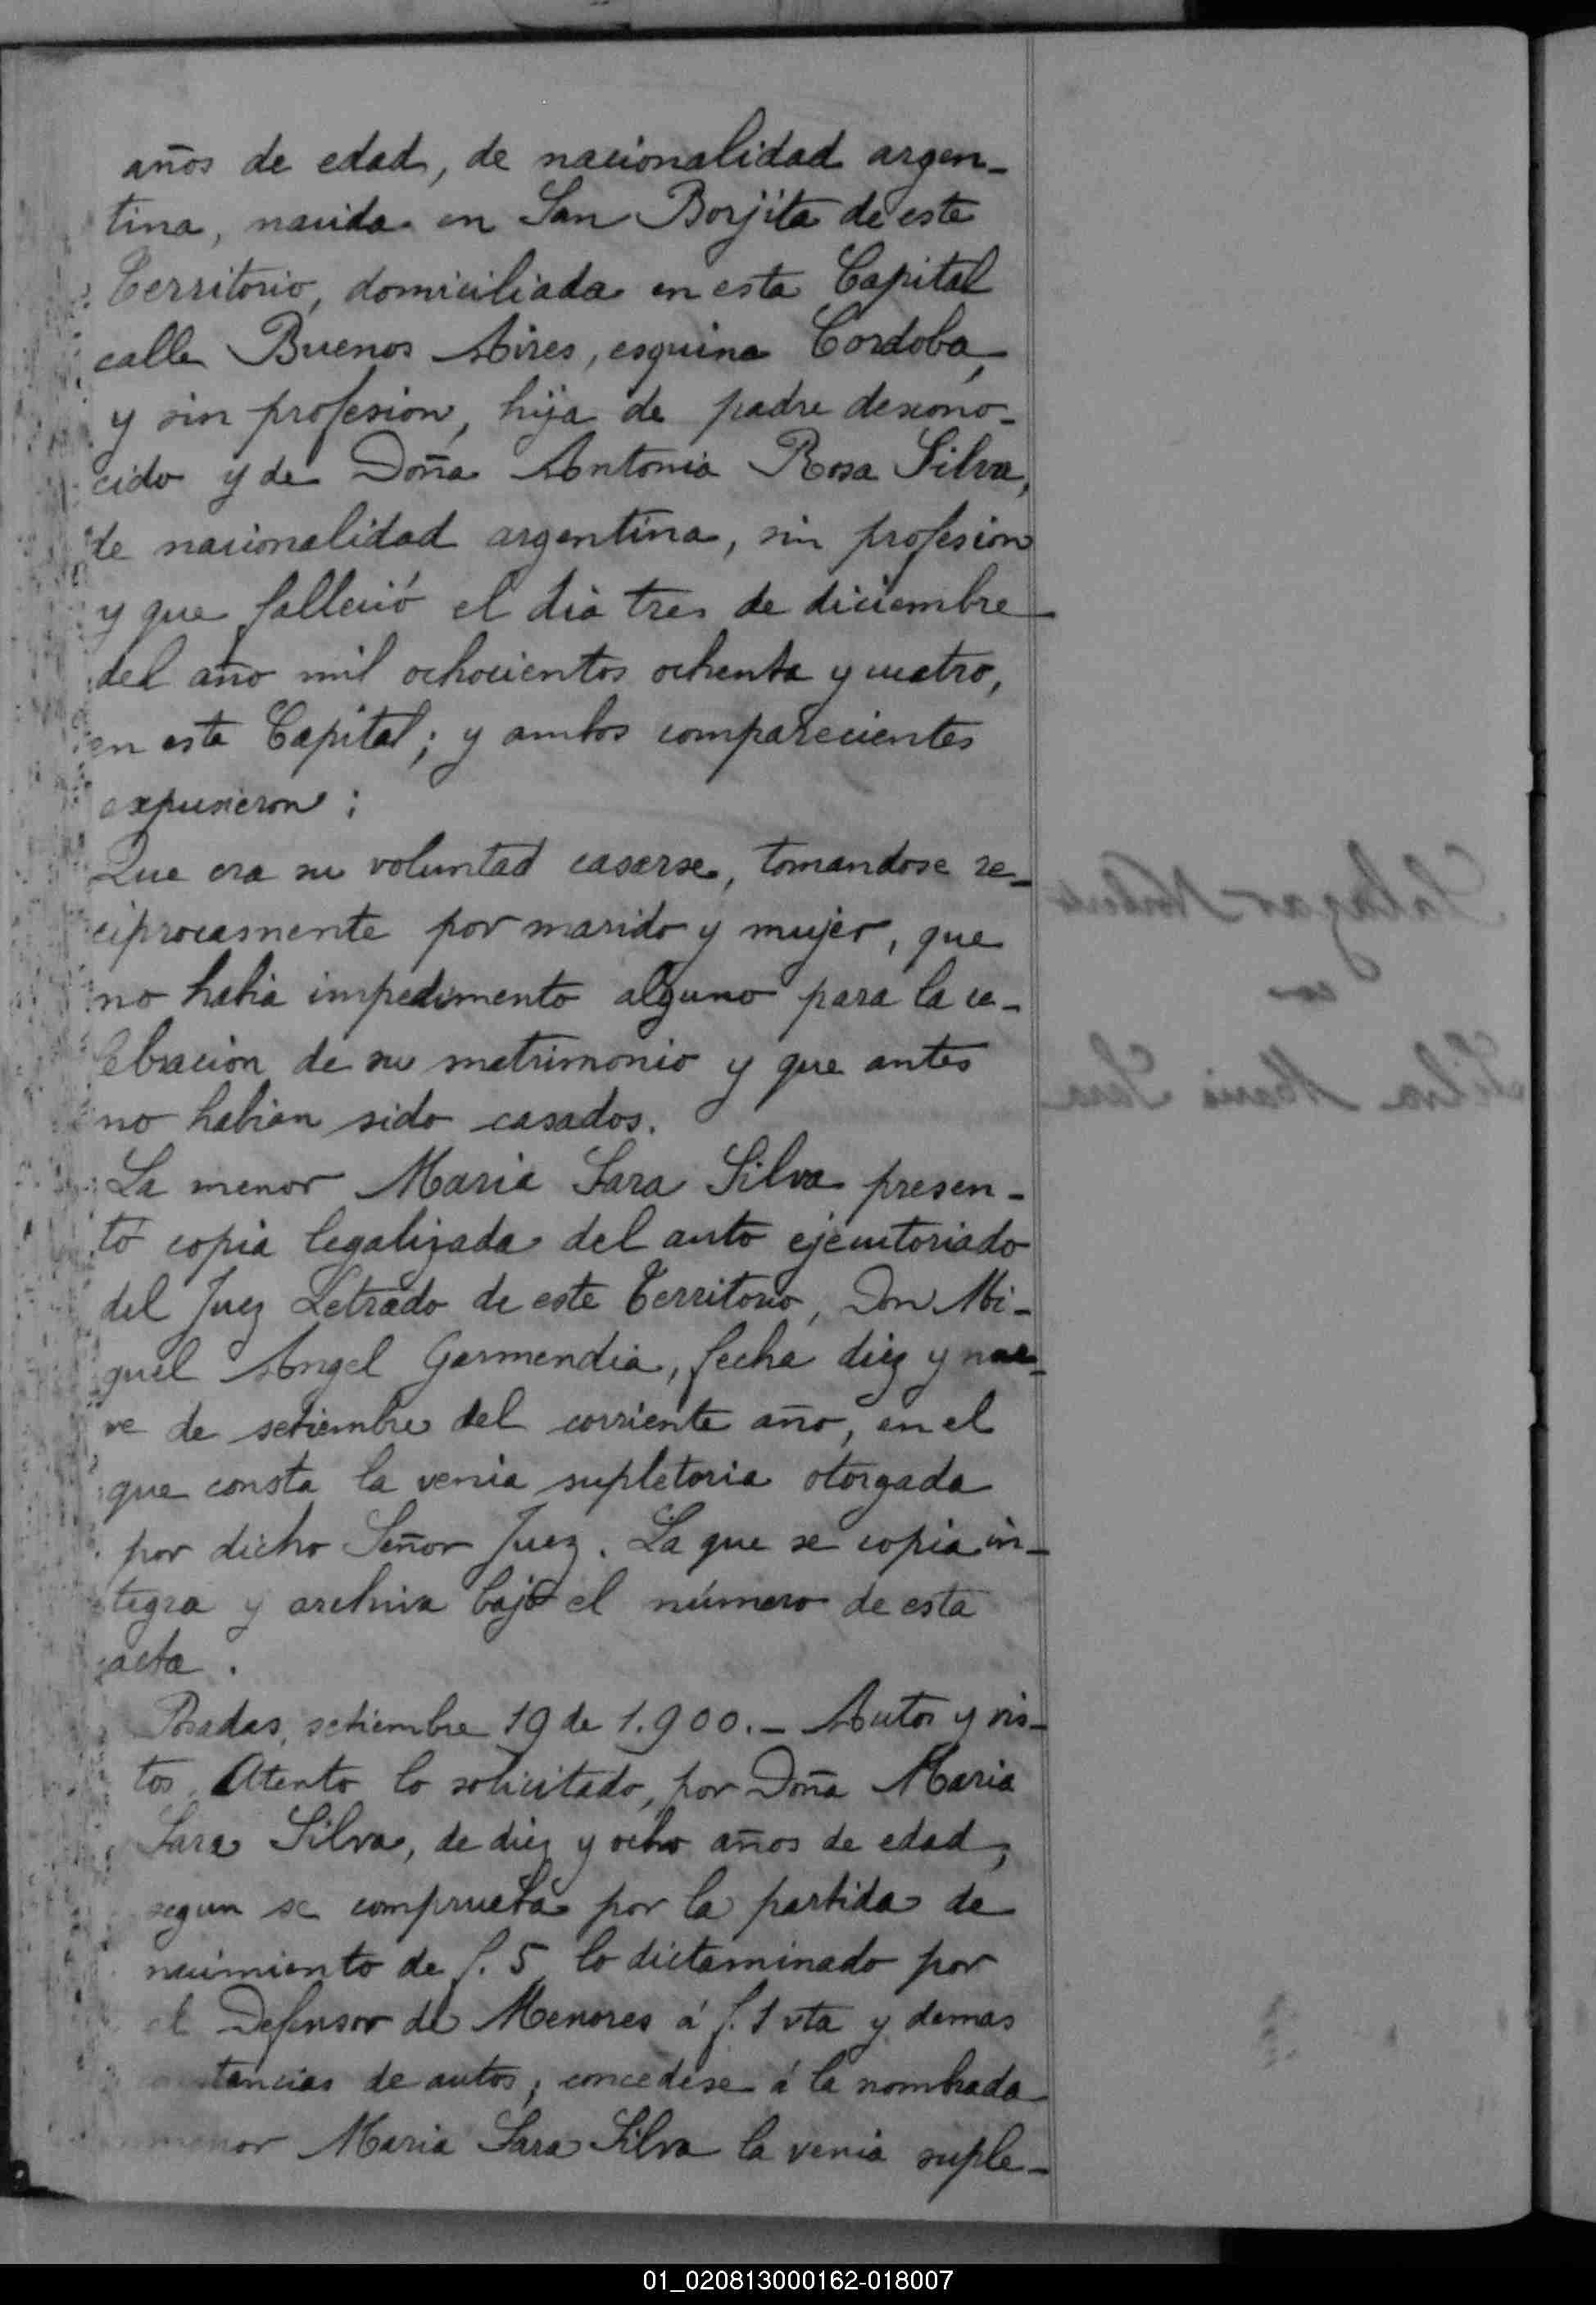 años de edad, de nacionalidad argen-
tina, nacida en San Borjita de este
Territorio, domiciliada en esta Capital
calle Buenos Aires, esquina Cordoba,
y sin profesion, hija de padre descono-
cido y de Doña Antonia Rosa Silva,
de nacionalidad argentina, sin profesion
y que falleció el dia tres de diciembre
del año mil ochocientos ochenta y cuatro,
en esta Capital; y ambos comparecientes
expusieron:
Que era su voluntad casarse, tomandose re-
ciprocamente por marido y mujer, que
no habia impedimento alguno para la ce-
lebracion de su matrimonio y que antes
no habian sido casados.
La menor Maria Sara Silva presen-
tó copia legalizada del auto ejecutoriado
del Juez Letrado de este Territorio, Don Mi-
guel Angel Garmendia, fecha diez y nue-
ve de setiembre del corriente año, en el
que consta la venia supletoria otorgada
por dicho Señor Juez. La que se copia in-
tegra y archiva bajo el número de esta
acta.
Posadas, setiembre 19 de 1.900.- Autos y vis-
tos, Atento lo solicitado, por Doña Maria
Sara Silva, de diez y ocho años de edad,
segun se comprueba por la partida de
nacimiento de f. 5, lo dictaminado por
el Defensor de Menores á f. 1 vta y demas
tancias de autos; concedese á la nombrada
menor Maria Sara Silva la venia suple-
Salazar
con
Silva Maria Sara
01_020813000162-018007